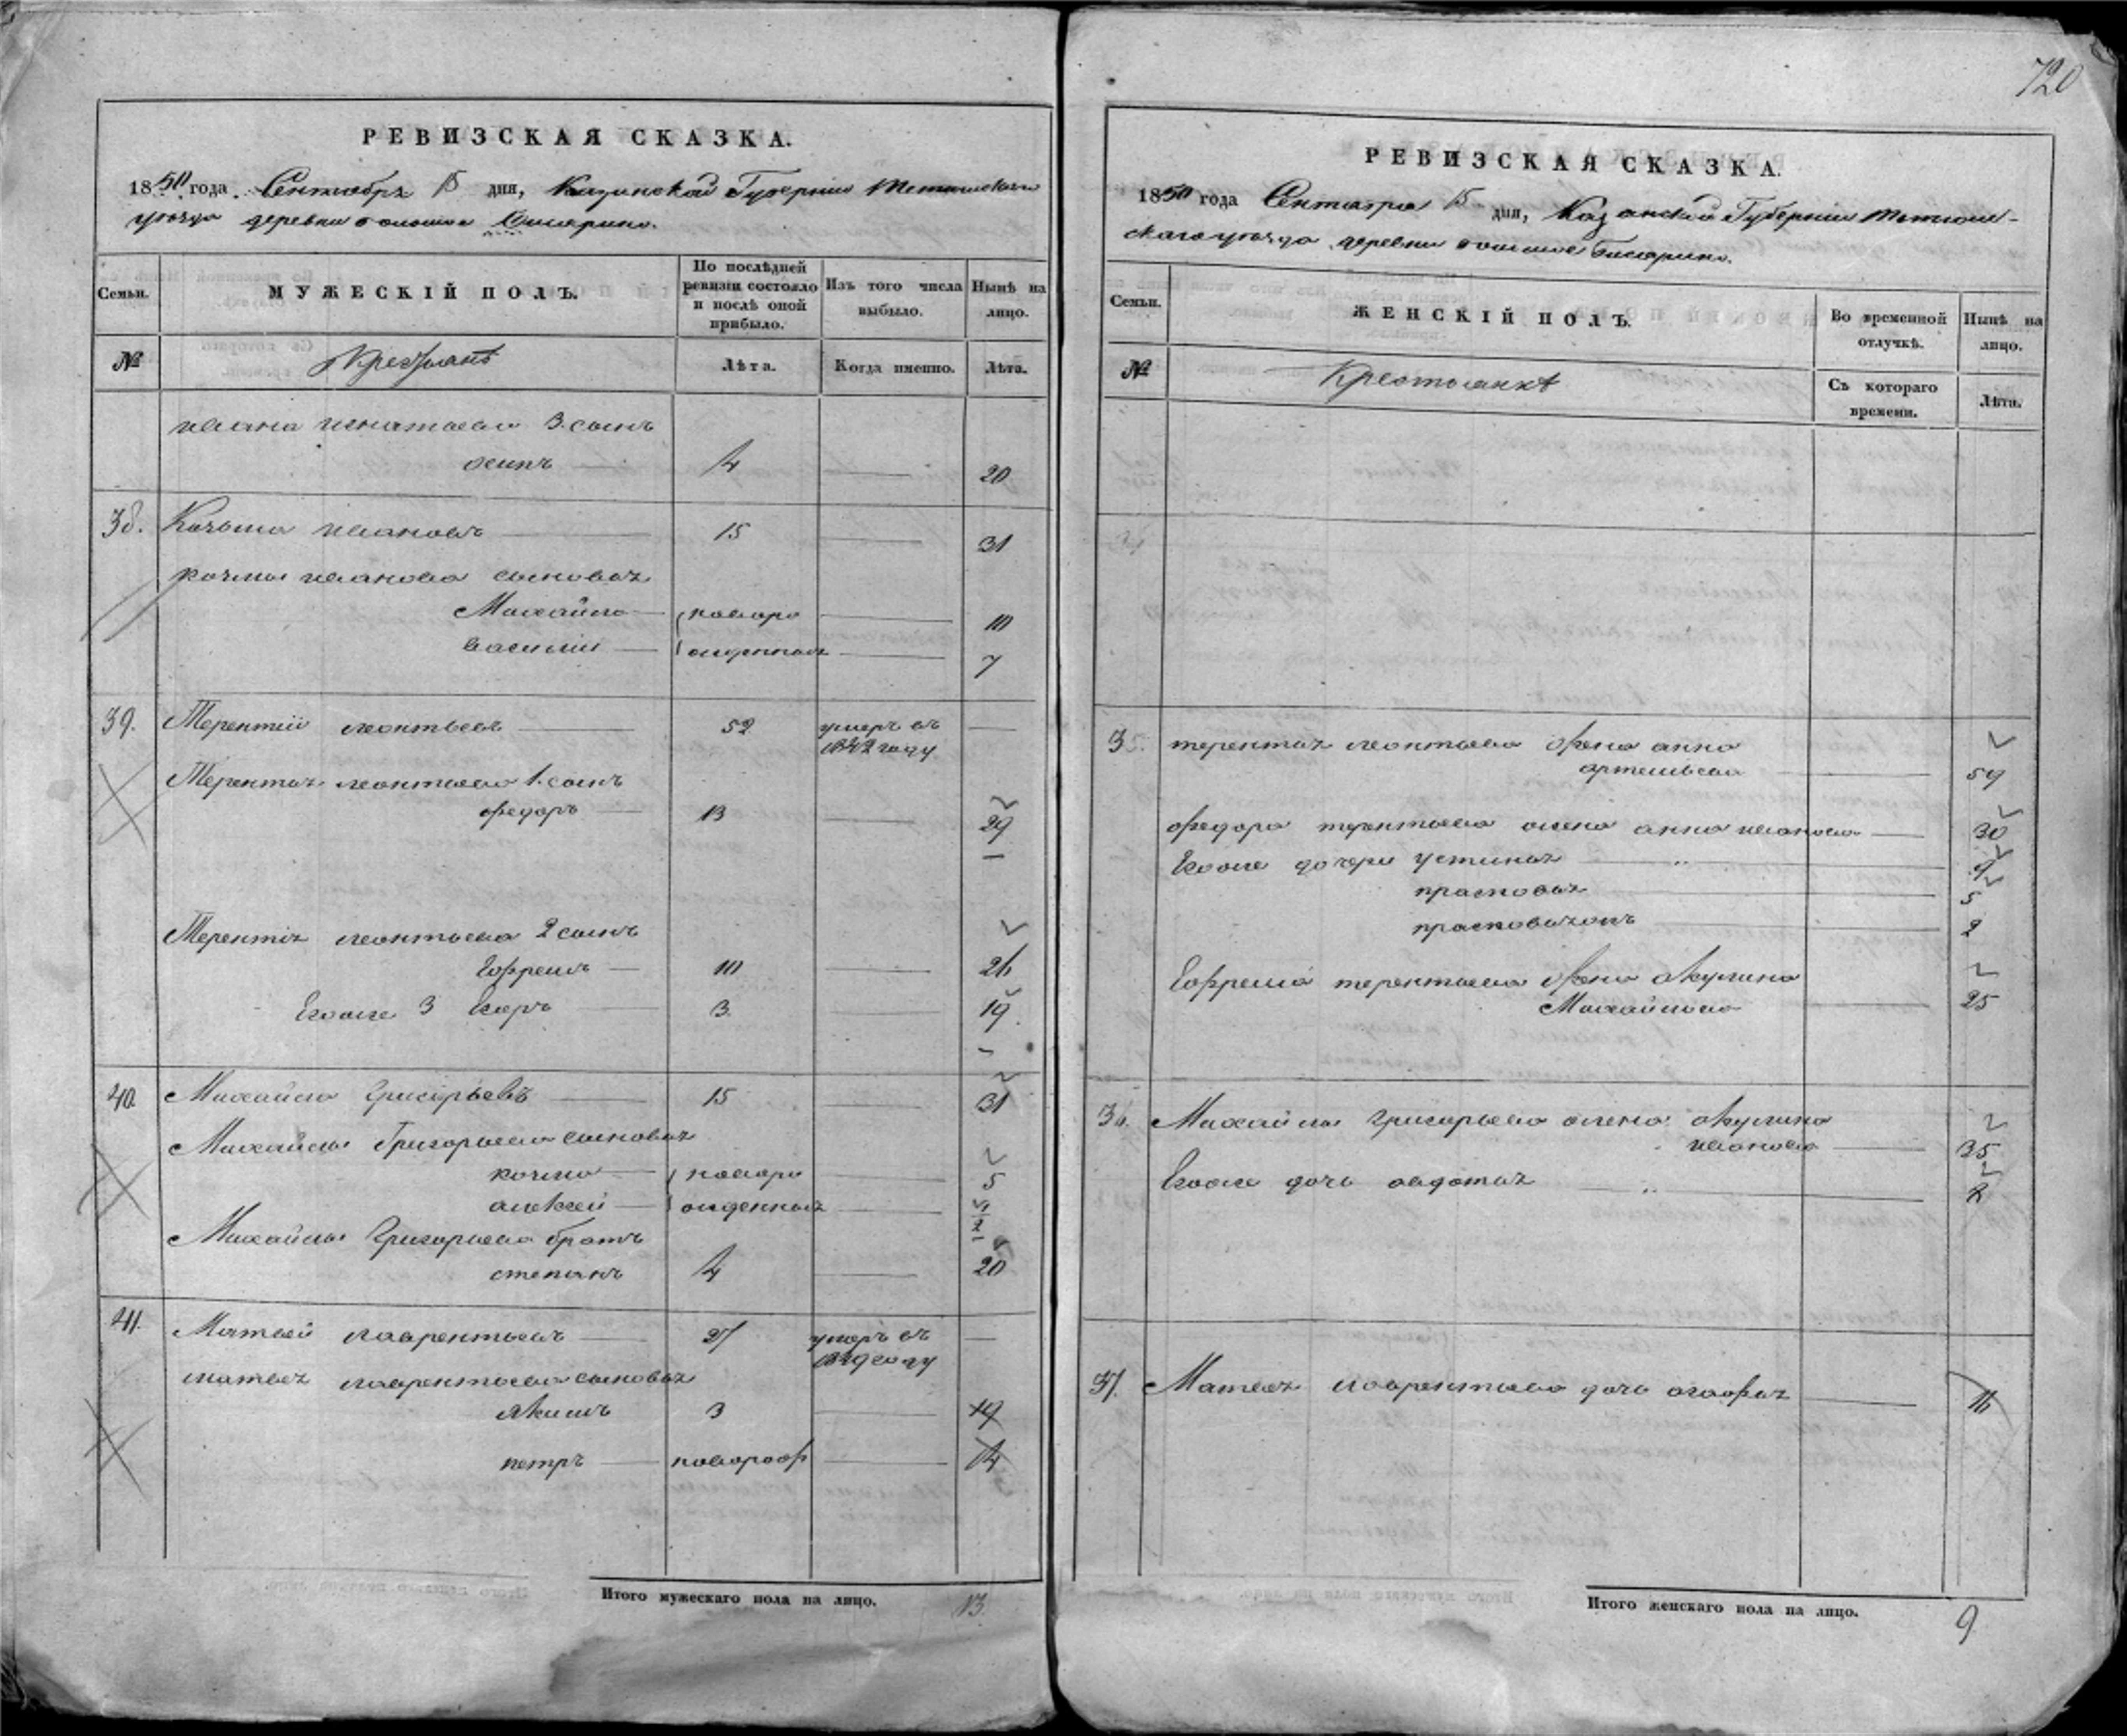 720
РЕВИЗСКАЯ СКАЗКА.
1850 года Сентября 15 дня, Казанской Губернiи Тетюшскаго
уѣзда деревни большое
Семьи.
МУЖЕСКІЙ ПОЛЪ.
По послѣдней ревизіи состояло и послѣ оной прибыло.
Изъ того числа выбыло.
Нынѣ на лицо.
№
Крестьянѣ
Лѣта.
Когда именно.
Лѣта.
ивана игнатьева 3. сынъ
осипъ 4 20
38. Козьма ивановъ 15 31
козмы иванова сыновья
Михайло новоро 10
василiй жденныя 7
39. Терентiй леонтьевъ 52 умеръ въ
1842 году
Терентья леонтьева 1. сынъ
федоръ 13 29
Терентiя леонтьева 2 сынъ
Ефремъ 10 26
Егоже 3 Егоръ 3. 19.
40. Михайло Григорьевъ 15 31
Михайлы Григорьева сыновья
козма новоро 5
алексей жденныя
Михайлы Григорьева братъ
степанъ 4 20
41. Матвей лаврентьевъ 27 умеръ въ
1849 году
матвея лаврентьева сыновья
Якимъ 3 19
петръ новорож 14
Итого мужескаго пола на лицо. 13
РЕВИЗСКАЯ СКАЗКА.
1850 года Сентября 15 дня, Казанской Губернiи Тетюш-
скаго уѣзда деревни большое
Семьи.
ЖЕНСКІЙ ПОЛЪ.
Во временной отлучкѣ.
Нынѣ на лицо.
№
Крестьянкѣ
Съ котораго времени.
Лѣта.
35. терентья леонтьева жена анна
артемьева 59
федора терентьева жена анна иванова 30
Егоже дочери устинья " 9
прасковья 5
2
Ефрема терентьева жена Акулина
Михайлова 25
36. Михайлы Григорьева жена Акулина
иванова 35
Егоже дочь авдотья " 8
37. Матвея лаврентьева дочь агафья 16
Итого женскаго пола на лицо. 9